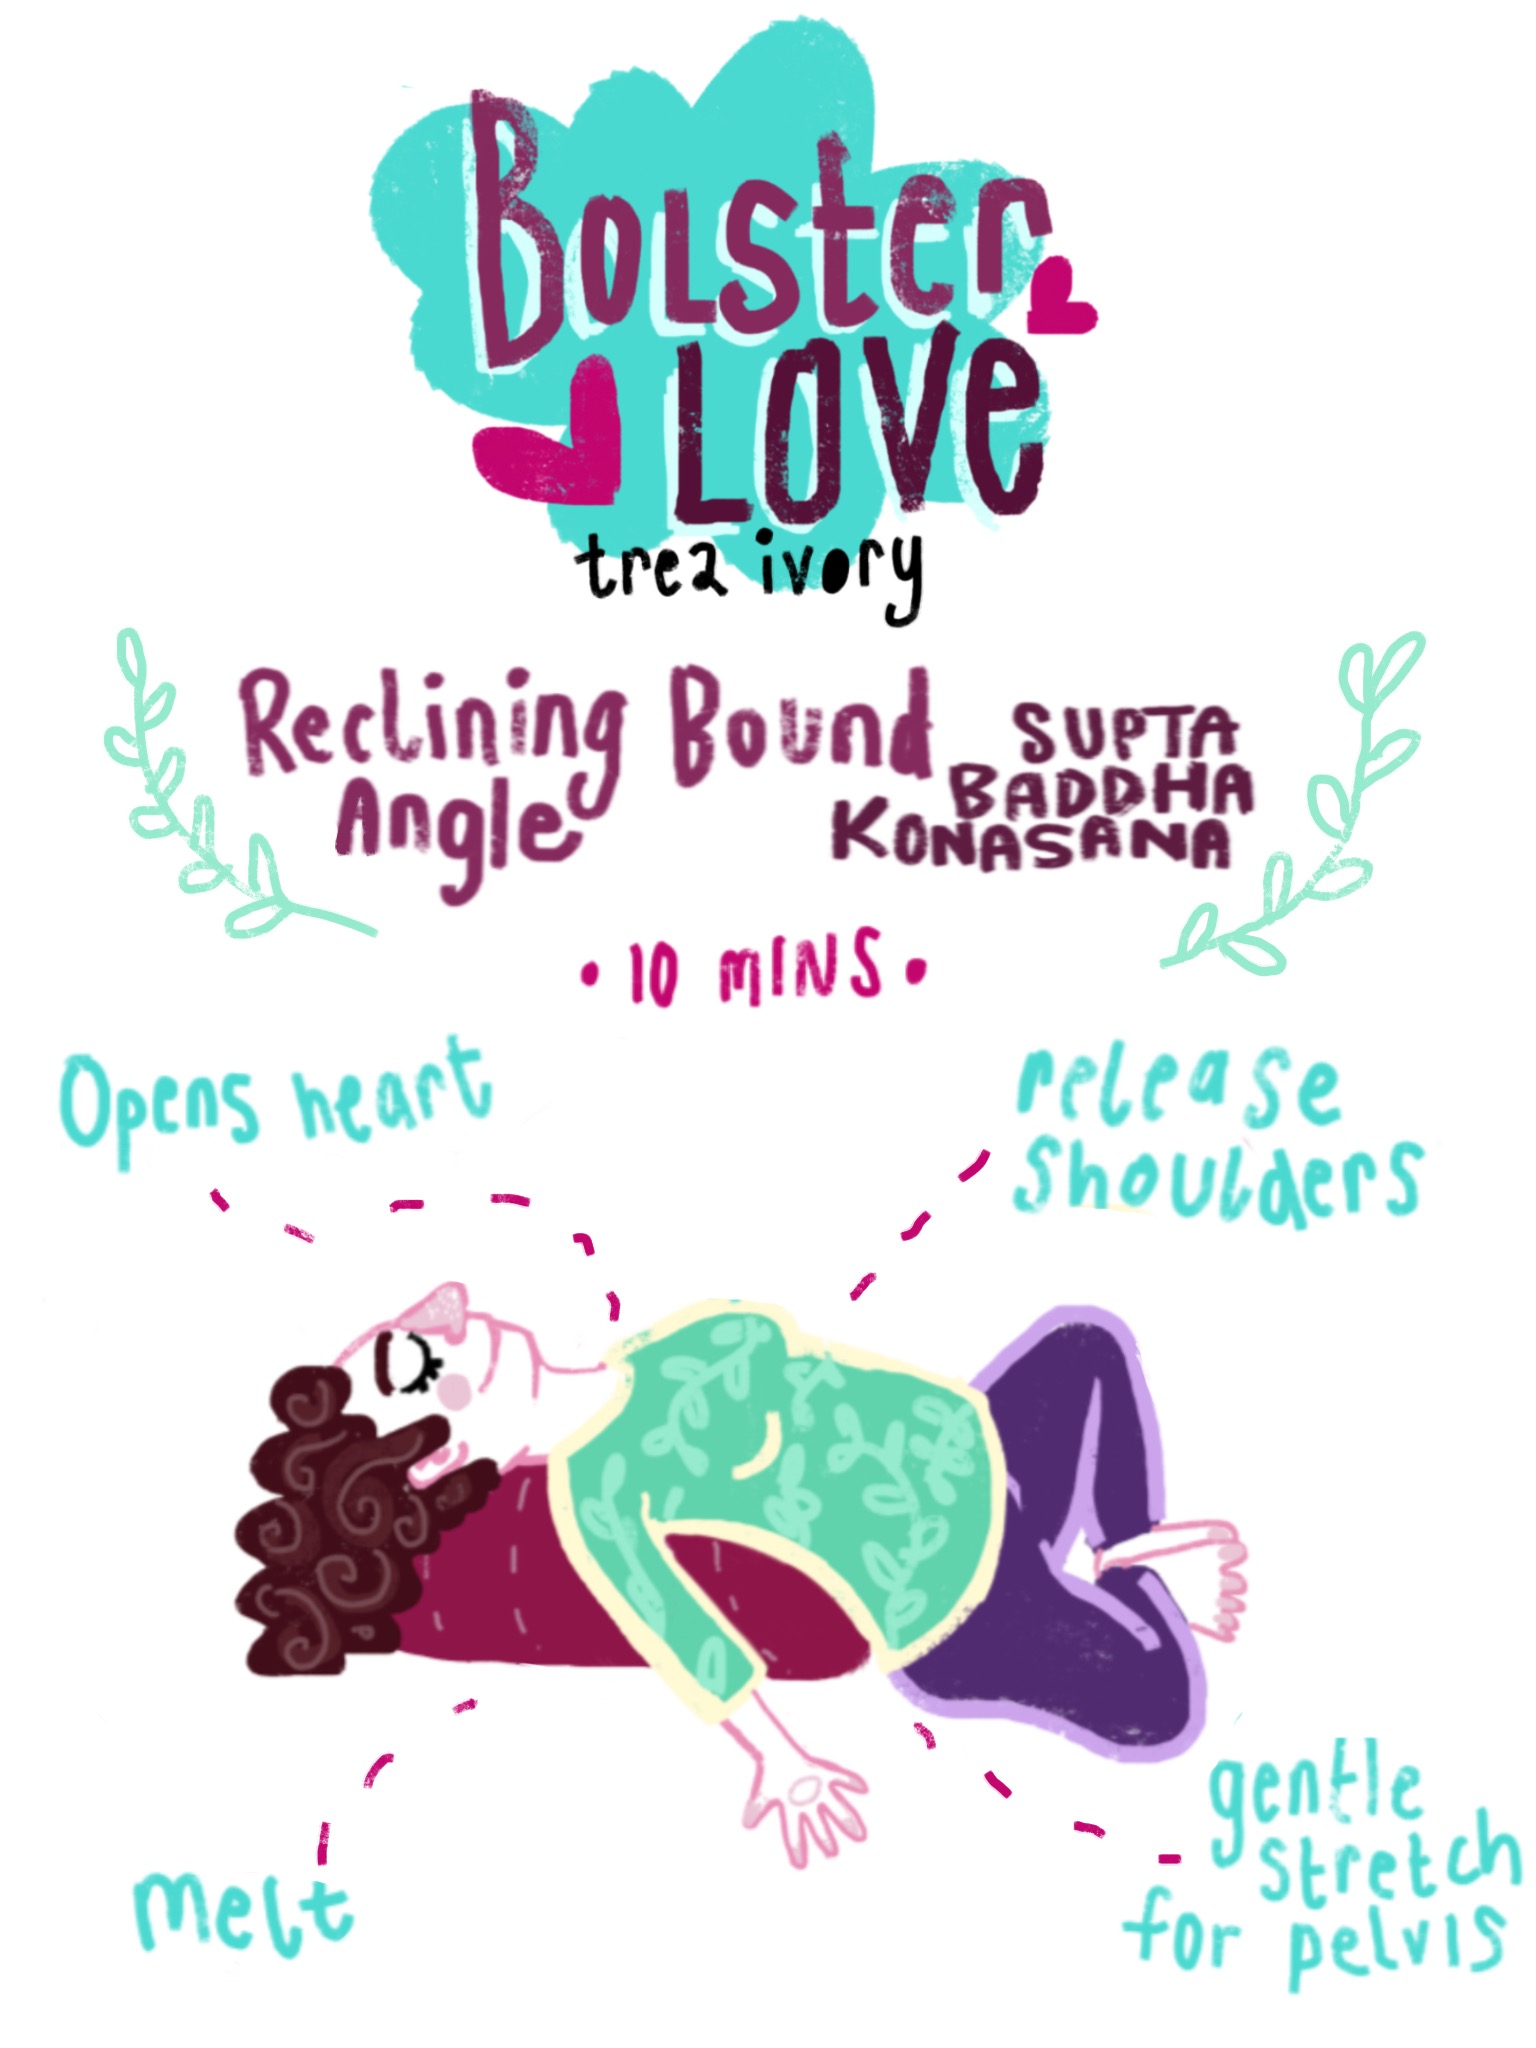 Bolster
Love
trea ivory
Reclining Bound
Angle
SUPTA
BADDHA
KONASANA
• 10 MINS •
Opens heart
release
shoulders
melt
gentle
stretch
for pelvis